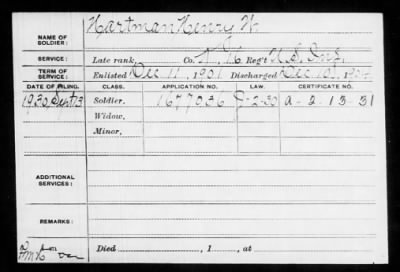 NAME OF SOLDIER: Hartman Henry W.
SERVICE: Late rank, Co. Reg't U.S. Inf.
TERM OF SERVICE: Enlisted Dec 11, 1901 Discharged Dec 10, 1904
DATE OF FILING. CLASS. APPLICATION NO. LAW. CERTIFICATE NO.
1930, Sept 13 Soldier. 1677036 6-2-30 A-2-13-31
Widow.
Minor.
ADDITIONAL SERVICES:
REMARKS:
Died , 1 , at